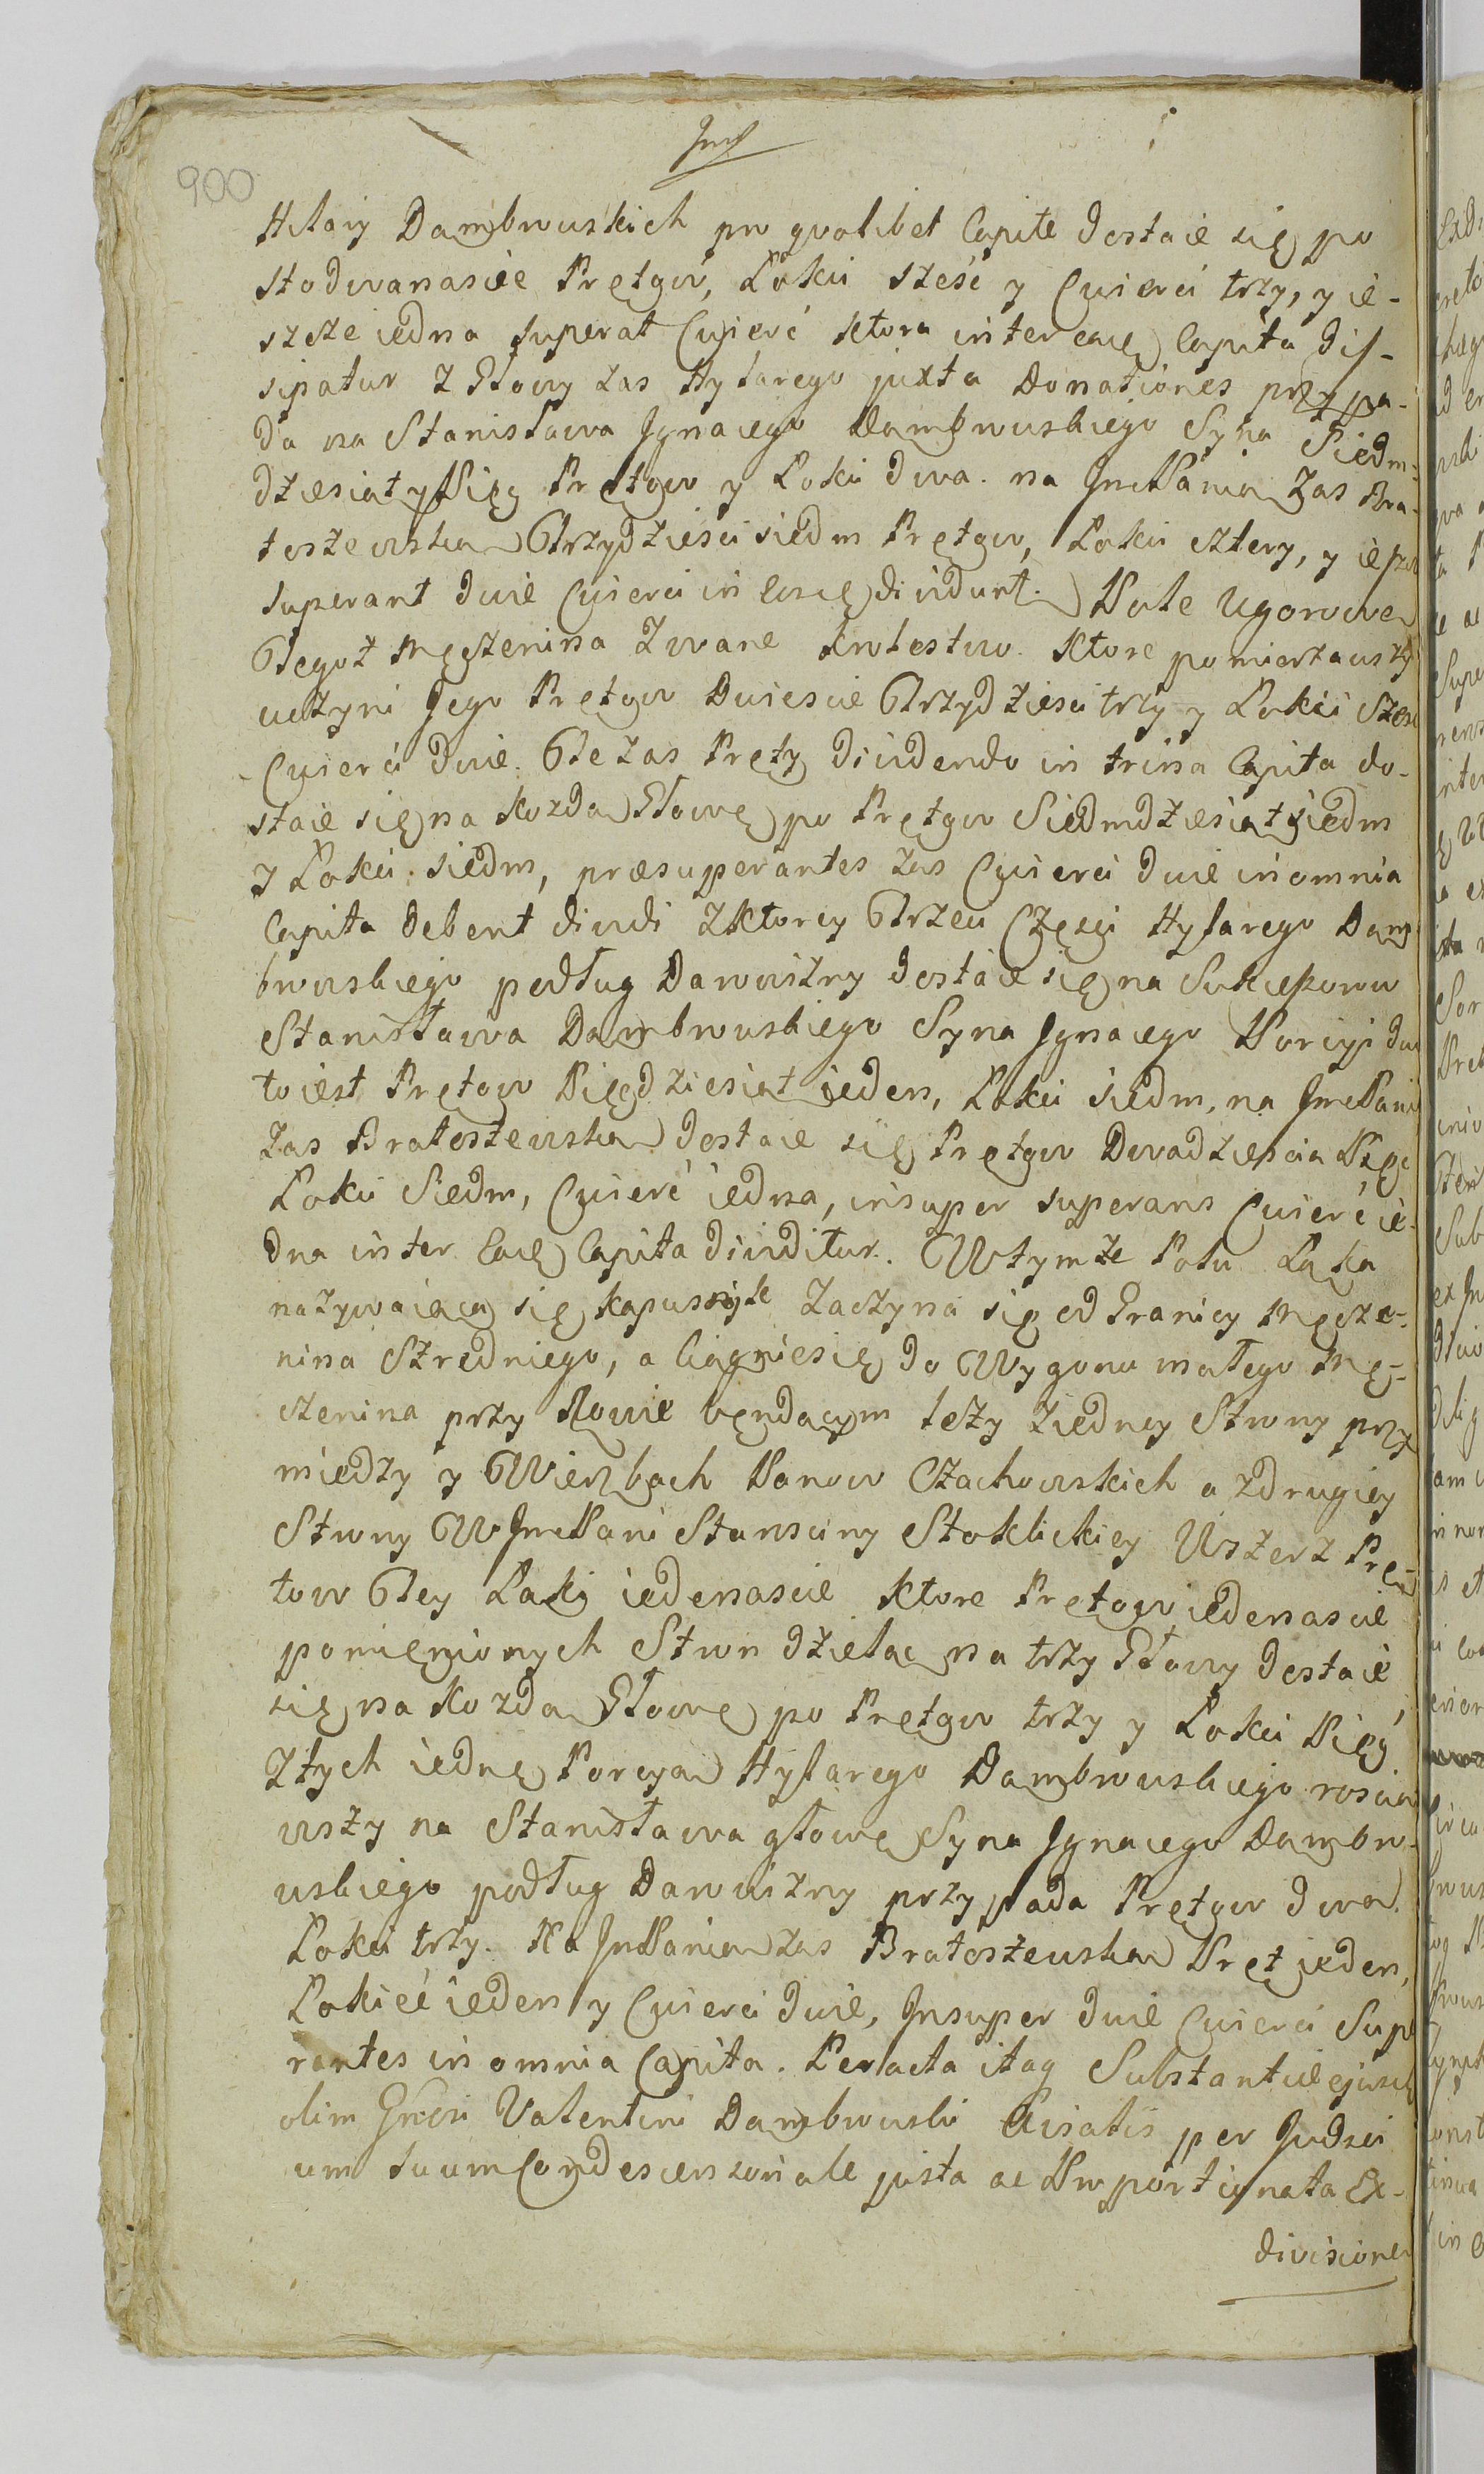 900
Hilary Dambrowskich pro qvolibet Capite dostaie się po
stodwanascie Prętow, Łokci sześć y Cwierci trzy, y ie-
szcze iedna superat Cwierć ktora inter easę Capita dis-
sipatur z Głowy zas Hylarego juxta Donationes przypa-
da na Stanisława Jgnacego Dambrowskiego Syna Siedm-
dziesiąt y Pięc Prętow y Łokci dwa. na JmPanią zas Bra-
toszewską Trzydziesci siedm Prętow, Łokci cztery, y
superant dwie Cwierci in easę dividunt. Pole Ugorowe
Tegoż Męczenina zwane krolestwo. Ktore pomierzawszy
uczyni Jego Prętow Dwiescie Trzydziesci trzy y Łokci szesc
Cwierci dwie. Te zas Pręty dividendo in trina Capita do-
staie się na kozdą Głowę po Prętow Siedmdziesiąt siedm
y Łokci siedm, præsuperantes zas Cwierci dwie in omnia
Capita debent dividi z Ktorey Trzeci Częsci Hylarego Dam-
browskiego podług Darowizny dostaie się na Sukcessorow
Stanisława Dambrowskiego Syna Jgnacego Porcyi dwi
to iest Prętow Pięcdziesiąt ieden, Łokci siedm, na JmPani
zas Bratoszewską dostaie się Prętow Dwadziescia Pięc
Łokci Siedm, Cwierć iedna, insuper superans Cwierć ie-
dna inter easę Capita dividitur. W tymze Polu Łąka
nazywaiącą się kapusnik zaczyna się od Granicy Męcze-
nina Szredniego, a Ciągnie się do Wygonu małego Mę-
czenina przy Rowie będącym leży z iedney Strony przy
miedzy y Wierzbach Panow Czachowskich a z drugiey
Strony W JmPani Stansciny Stoklickiey Wszerz Prę-
tow Tey Łąki iedenascie Ktore Prętow iedenascie
pomienionych Stron dzieląc na trzy Głowy dostaie
się na Kozdą Głowę po Prętow trzy y Łokci Pięć
Z tych iednę Porcyą Hylarego Dambrowskiego
wszy na Stanisława głowę Syna Jgnacego Dambro-
wskiego podług Darowizny przypada Prętow dwa
Łokci trzy. Na JmPanią zas Bratoszewską Pręt ieden,
Łokieć ieden y Cwierci dwie, Insuper dwie Cwierci Supe
rantes in omnia Capita. Peracta itaq Substantiæ ejusd
olim Grosi Valentini Dambrowski Avialis per Judici
um suum Condescensoriale justa ac Proportionata Ex-
divisione